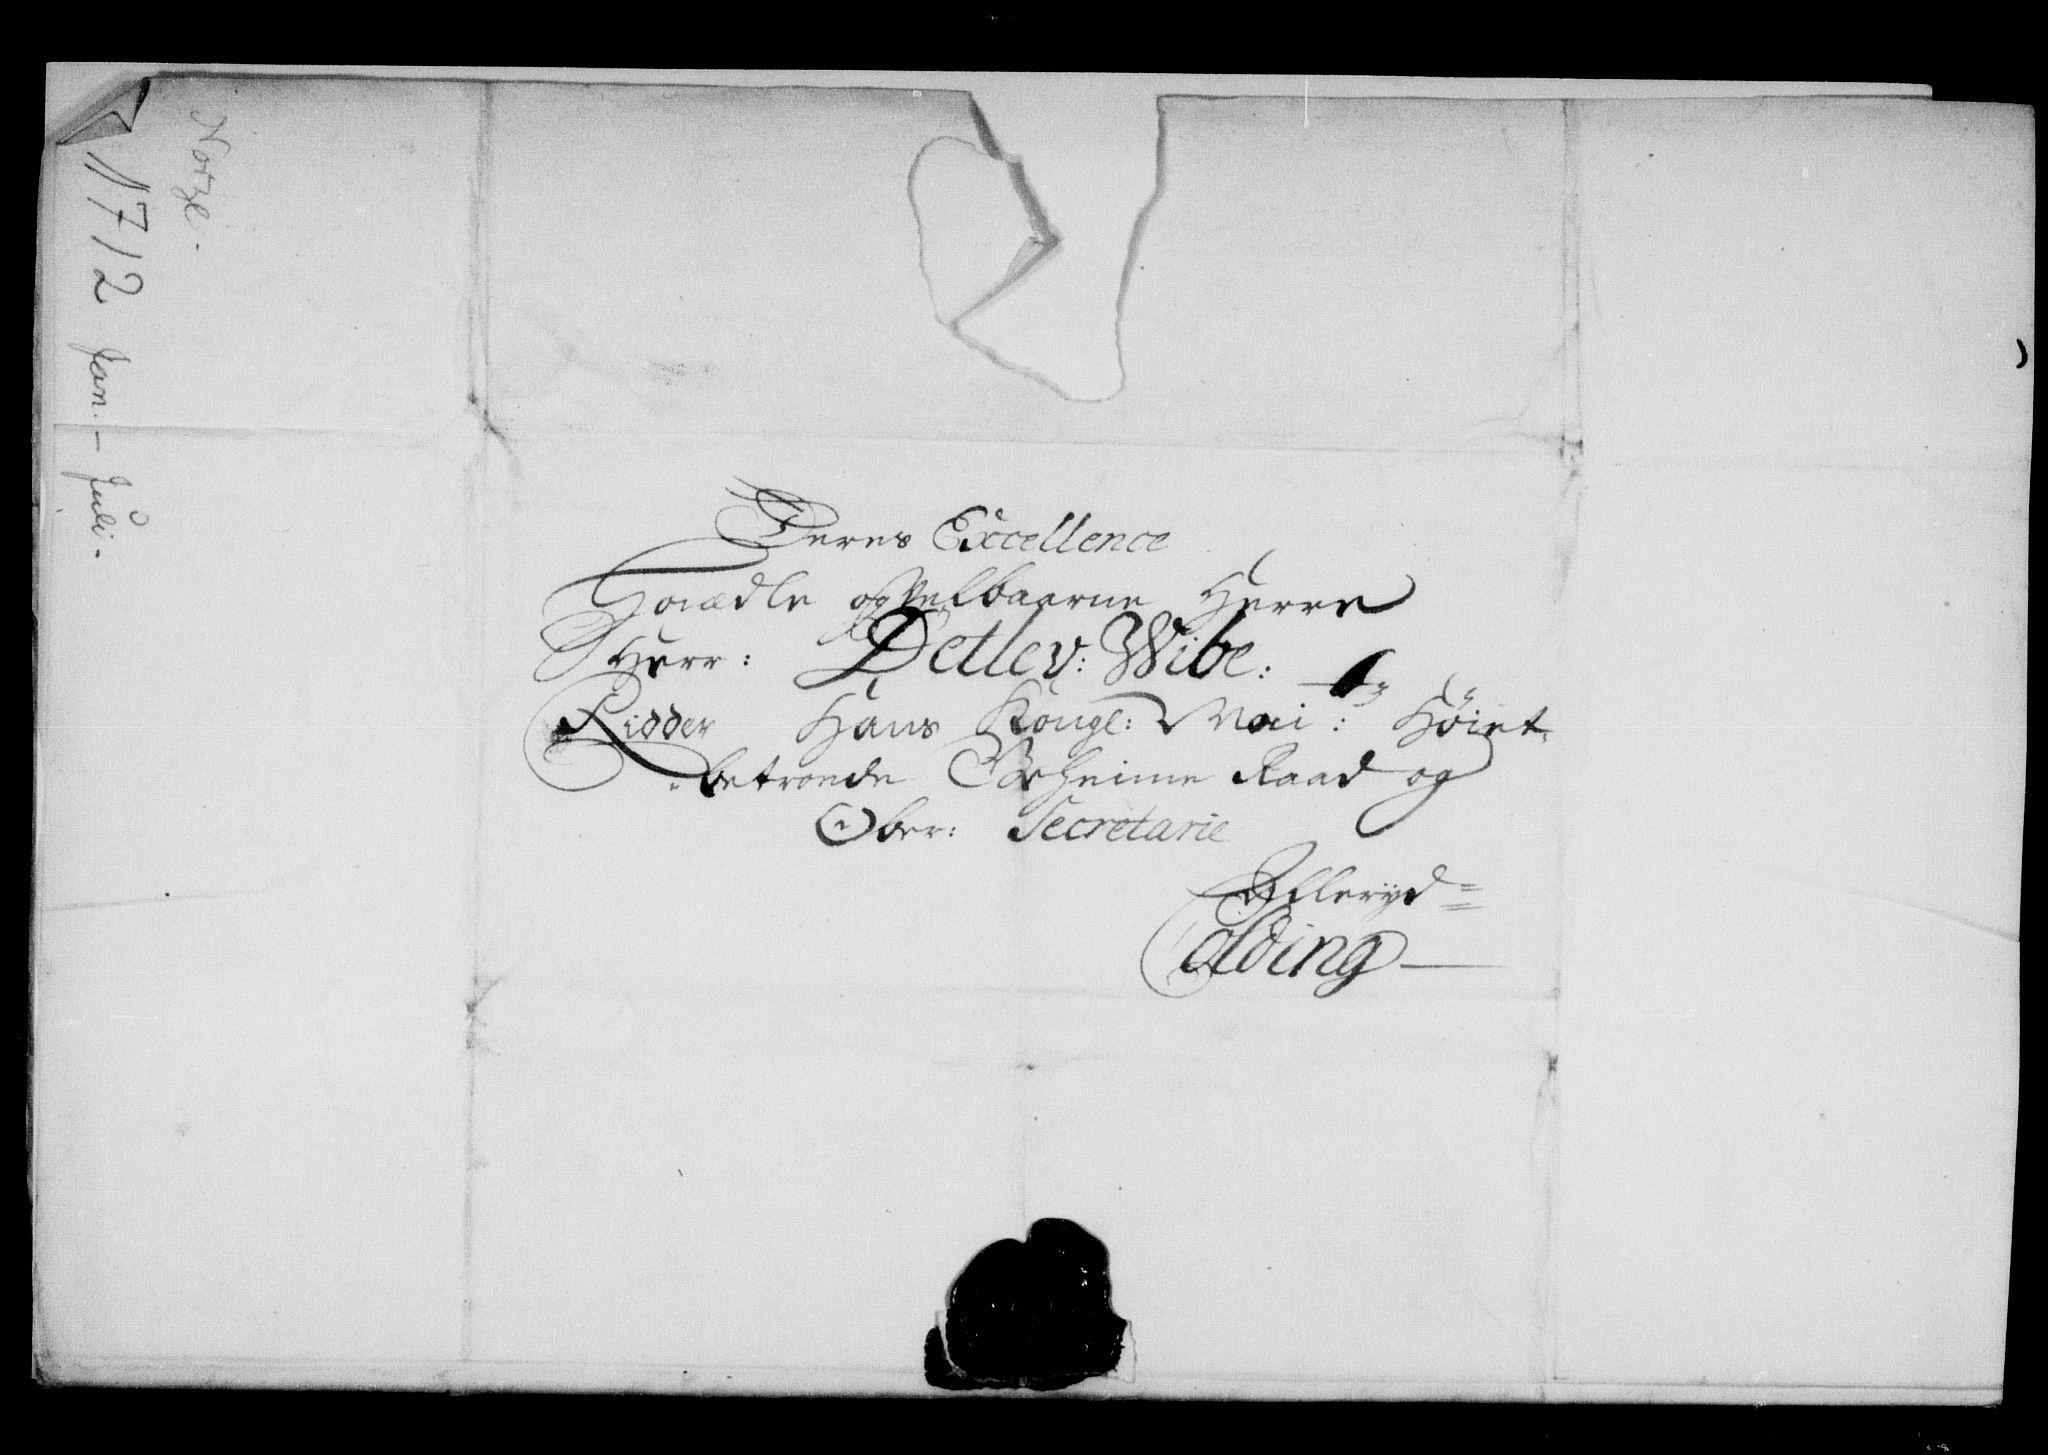 Norge.
1712 Jan. – Juli.
Deres Excellence
Høiædle og Velbaarne Herre
Herr: Detlev: Wibe:
Ridder Hans Kongl: Mai: Høist-
betroede Geheime Raad og
Ober: Secretarie
Colding